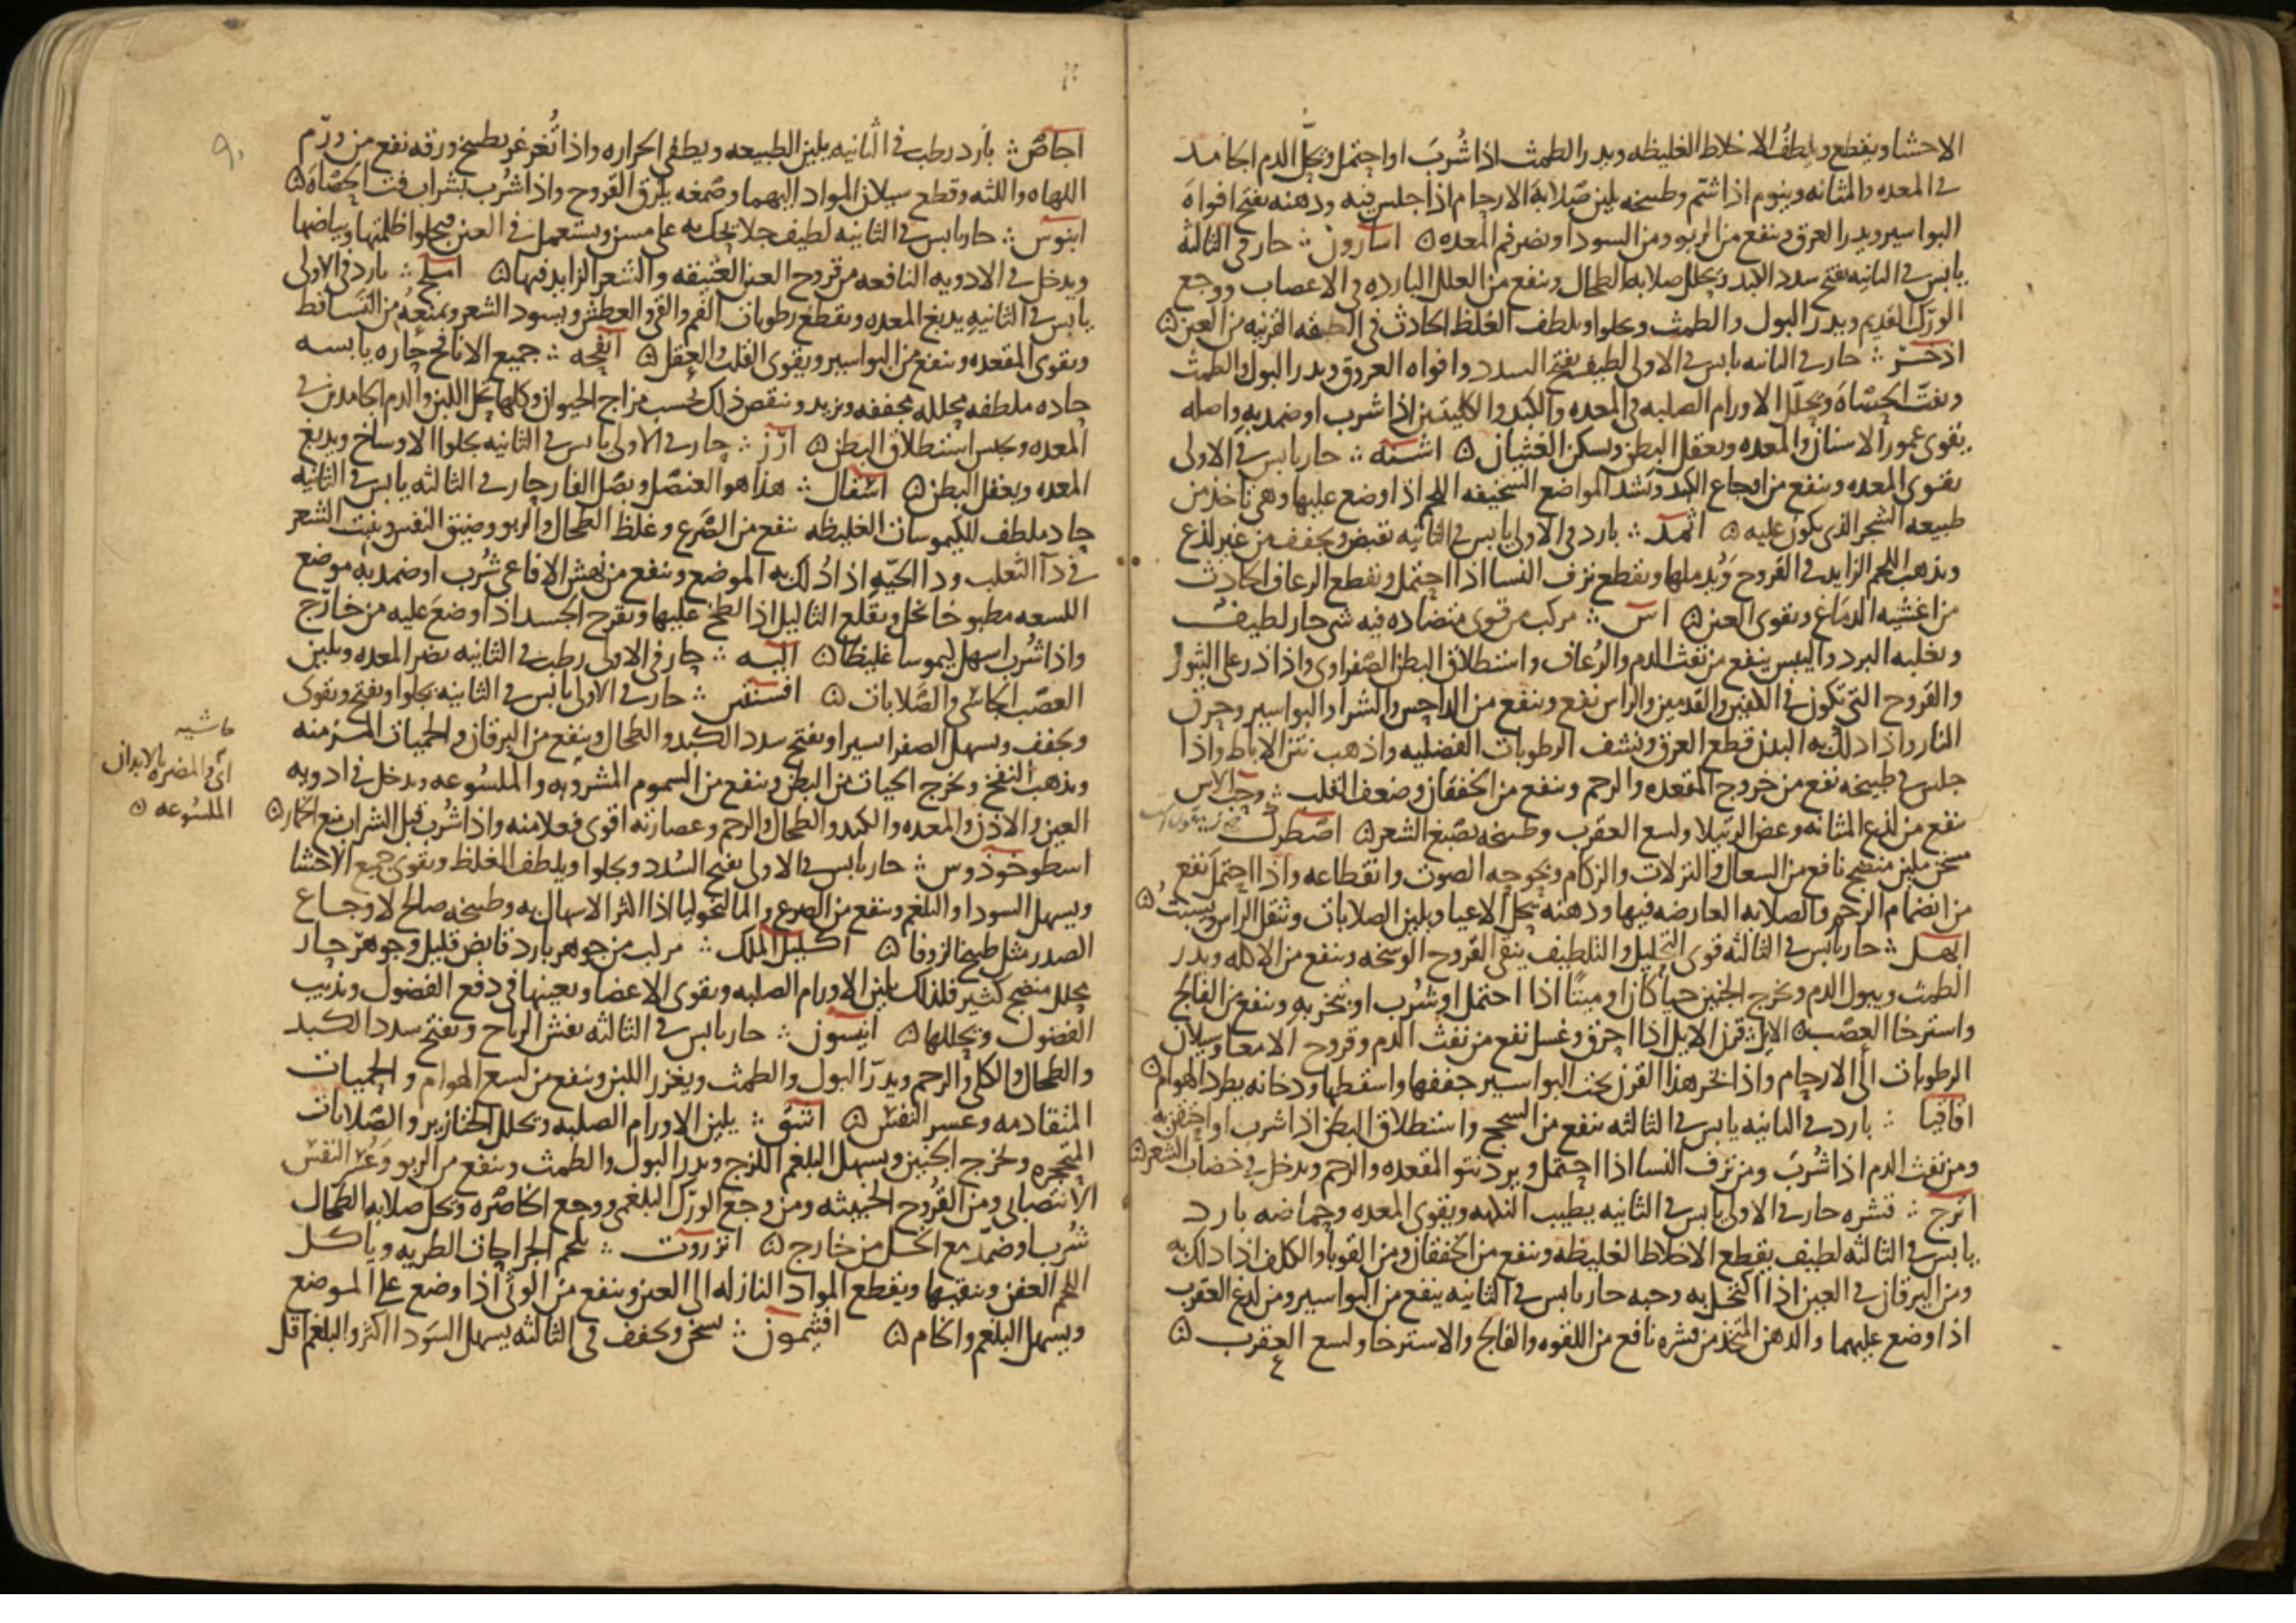 الاحشا ويقطع ويلطف الاخلاط الغليظه ويدر الطمث اذا شُربَ او احتمل ويحلّ الدم الجامد
في المعده والمثانه وينوم اذا شتم وطبيخه يلين صلابة الارحام اذا جلس فيه ودهنه يفتح افواهَ
البواسير ويدر العرق وينفع من الربو ومن السودا ويضر فم المعده ۞ اسارون ⁘ حار في الثالثه
يابس في الثانيه يفتح سدد الكبد ويحلل صلابه الطحال وينفع من العلل البارده في الاعصاب ووجع
الورك القديم ويدر البول والطمث ويجلوا ويلطف الغلظ الحادث في الطبقه القرنيه من العين ۞
اذخر ⁘ حار في الثانيه يابس في الاولى لطيف يفتح السدد وافواه العروق ويدر البول والطمث
ويفتّ الحصاه ويحلّل الاورام الصلبه في المعده والكبد والكليتين اذا شرب او ضمد به واصله
يقوى عمور الاسنان والمعده ويعقل البطن ويسكن الغثيان ۞ اشنه ⁘ حار يابس في الاولى
يقوى المعده وينفع من اوجاع الكبد وتشد المواضع السخيفه اللحم اذا وضع عليها وهي تاخذ من
طبيعه الشجر الذى يكون عليه ۞ اثمد ⁘ بارد في الاولى يابس في الثانيه يقبض ويجفف من غير لذع
ويذهب اللحم الزايد في القروح ويُدملها ويقطع نزف النسا اذا احتمل ويقطع الرعاف الحادث
من اغشيه الدماغ ويقوى العين ۞ اس ⁘ مركب من قوى متضاده فيه شى حار لطيف
وتغلبه البرد واليبس ينفع من نفث الدم والرُعاف واستطلاق البطن الصفراوى واذا ذر على البثور
والقروح التى تكون في الكفين والقدمين والراس نفع وينفع من الداحس والشرا والبواسير وحرق
النار واذا دلك به البدن قطع العرق ونشف الرطوبات الفضليه واذهب نتن الاباط واذا
جلس في طبيخه نفع من خروج المقعده والرحم وينفع من الخفقان وضعف القلب ⁘ وحب الاس
ينفع من لذع المثانه وعض الرتيلا ولسع العقرب وطبيخه يصبغ الشعر ۞ اصطرك
مسخن ملين منضج نافع من السعال والنزلات والزكام وبحوحه الصوت وانقطاعه واذا احتمل نفع
من انضمام الرحم والصلابه العارضه فيها ودهنه يحلّ الاعيا ويلين الصلابات ويثقل الراس ويسبتُ ۞
ابهل ⁘ حار يابس في الثالثه قوى التحليل والتلطيف ينقى القروح الوسخه وينفع من الاكله ويدر
الطمث ويبول الدم ويخرج الجنين حيا كان او ميتًا اذا احتمل او شُرب او يتبخر به وينفع من الفالج
واسترخا العصب ۞ الايل ⁘ قرن الايل اذا احرق وغسل نفع من نفث الدم وقروح الامعا وسيلان
الرطوبات الى الارحام واذا بخر هذا القرن تحت البواسير جففها واسقطها ودخانه يطرد الهوام ۞
اقاقيا ⁘ بارد في الثانيه يابس في الثالثه ينفع من السحج واستطلاق البطن اذا شرب او احتقن به
ومن نفث الدم اذا شُربَ ومن نزف النسا اذا احتمل ويرد نتو المقعده والرحم ويدخل في خضاب الشعر ۞
اترج ⁘ قشره حار في الاولى يابس في الثانيه يطيب النكهه ويقوى المعده وحماضه بارد
يابس في الثالثه لطيف يقطع الاخلاط الغليظه وينفع من الخفقان ومن القوبا والكلف اذا دلك به
ومن اليرقان في العين اذا اكتحل به وحبه حار يابس في الثانيه ينفع من البواسير ومن لدغ العقرب
اذا وضع عليهما والدهن المتخذ من قشره نافع من اللقوه والفالج والاسترخا ولسع العقرب ۞
٩٠
اجاص ⁘ بارد رطب في الثانيه يلين الطبيعه ويطفى الحراره واذا تُغرغر بطبيخ ورقه نفع من ورم
اللهاه واللثه وقطع سيلان المواد اليهما وصمغه يلزق القروح واذا شُرب بشراب فتت الحصاه ۞
ابنوس ⁘ حار يابس في الثانيه لطيف جلا يحك به على مسن ويستعمل في العين فيجلوا ظلمتها وبياضها
ويدخل في الادويه النافعه من قروح العين العتيقه والشعر الزايد فيها ۞ املج ⁘ بارد في الاولى
يابس في الثانيه يدبغ المعده ويقطع رطوبات الفم والقى والعطش ويسود الشعر ويمنعه من التساقط
ويقوى المقعده وينفع من البواسير ويقوى القلب والعقل ۞ انفحه ⁘ جميع الانافح حاره يابسه
حاده ملطفه محلله مجففه ويزيد وينقص ذلك بحسب مزاج الحيوان وكلها تحل اللبن والدم الجامد في
المعده ويحبس استطلاق البطن ۞ ارز ⁘ حار في الاولى يابس في الثانيه يجلوا الاوساخ ويدبغ
المعده ويعقل البطن ۞ اسقال ⁘ هذا هو العنصل وبصل الفار حار في الثالثه يابس في الثانيه
حاد ملطف للكيموسات الغليظه ينفع من الصرع وغلظ الطحال والربو وضيق النفس وينبت الشعر
في دآ الثعلب ودا الحيّه اذا دُلك به الموضع وينفع من نهش الافاعى شُرب او ضمد به موضع
اللسعه مطبوخا بخل ويقلع الثاليل اذا لطخ عليها ويقرح الجسد اذا وضع عليه من خارج
واذا شُرب اسهل كيموسا غليظا ۞ اليه ⁘ حار في الاولى رطب في الثانيه يضر المعده ويلين
العصب الجاسى والصلابات ۞ افسنتين ⁘ حار في الاولى يابس في الثانيه يجلوا ويفتح ويقوى
ويجفف ويسهل الصفرا يسيرا ويفتح سدد الكبد والطحال وينفع من اليرقان والحميات المزمنه
ويذهب النفخ ويخرج الحيات من البطن وينفع من السموم المشروبه والملسوعه ويدخل في ادويه
العين والاذن والمعده والكبد والطحال والرحم وعصارته اقوى فعلا منه واذا شُرب قبل الشراب منع الخمار ۞
حاشيه
اى المضره بالابدان
الملسوعه ۞
اسطوخودوس ⁘ حار يابس في الاولى يفتح السُدد ويجلوا ويلطف الغلظ ويقوى جميع الاحشا
ويسهل السودا والبلغم وينفع من الصرع والمالنخوليا اذا اكثر الاسهال به وطبيخه صالح لاوجاع
الصدر مثل طبيخ الزوفا ۞ اكليل الملك ⁘ مركب من جوهر بارد قابض قليل وجوهر حار
يحلل منضج كثير فلذلك يلين الاورام الصلبه ويقوى الاعضا ويعينها في دفع الفضول ويذيب
الفضول ويحللها ۞ انيسون ⁘ حار يابس في الثالثه يفش الرياح ويفتح سدد الكبد
والطحال والكلى والرحم ويدرّ البول والطمث ويغزر اللبن وينفع من لسع الهوام والحميات
المتقادمه وعسر النفس ۞ اشق ⁘ يلين الاورام الصلبه ويحلل الخنازير والصّلابات
المتحجره ويخرج الجنين ويسهل البلغم اللزج ويدر البول والطمث وينفع من الربو وعُسر النفس
الانتصابى ومن القروح الخبيثه ومن وجع الورك البلغمى ووجع الخاصره ويحل صلابه الطحال
شُرب او ضمّد مع الخل من خارج ۞ انزروت ⁘ يلحم الجراحات الطريه وياكل
اللحم العفن وينقيها ويقطع المواد النازله الى العين وينفع من الوثى اذا وضع على الموضع
ويسهل البلغم والخام ۞ افثيمون ⁘ يسخن ويجفف في الثالثه يسهل السّودا اكثر والبلغم اقل